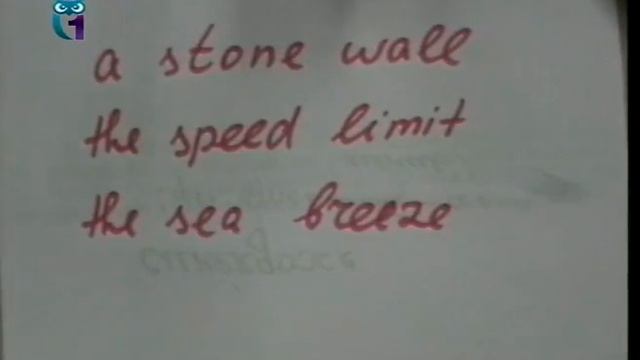 1
a stone wall
the speed limit
the sea breeze